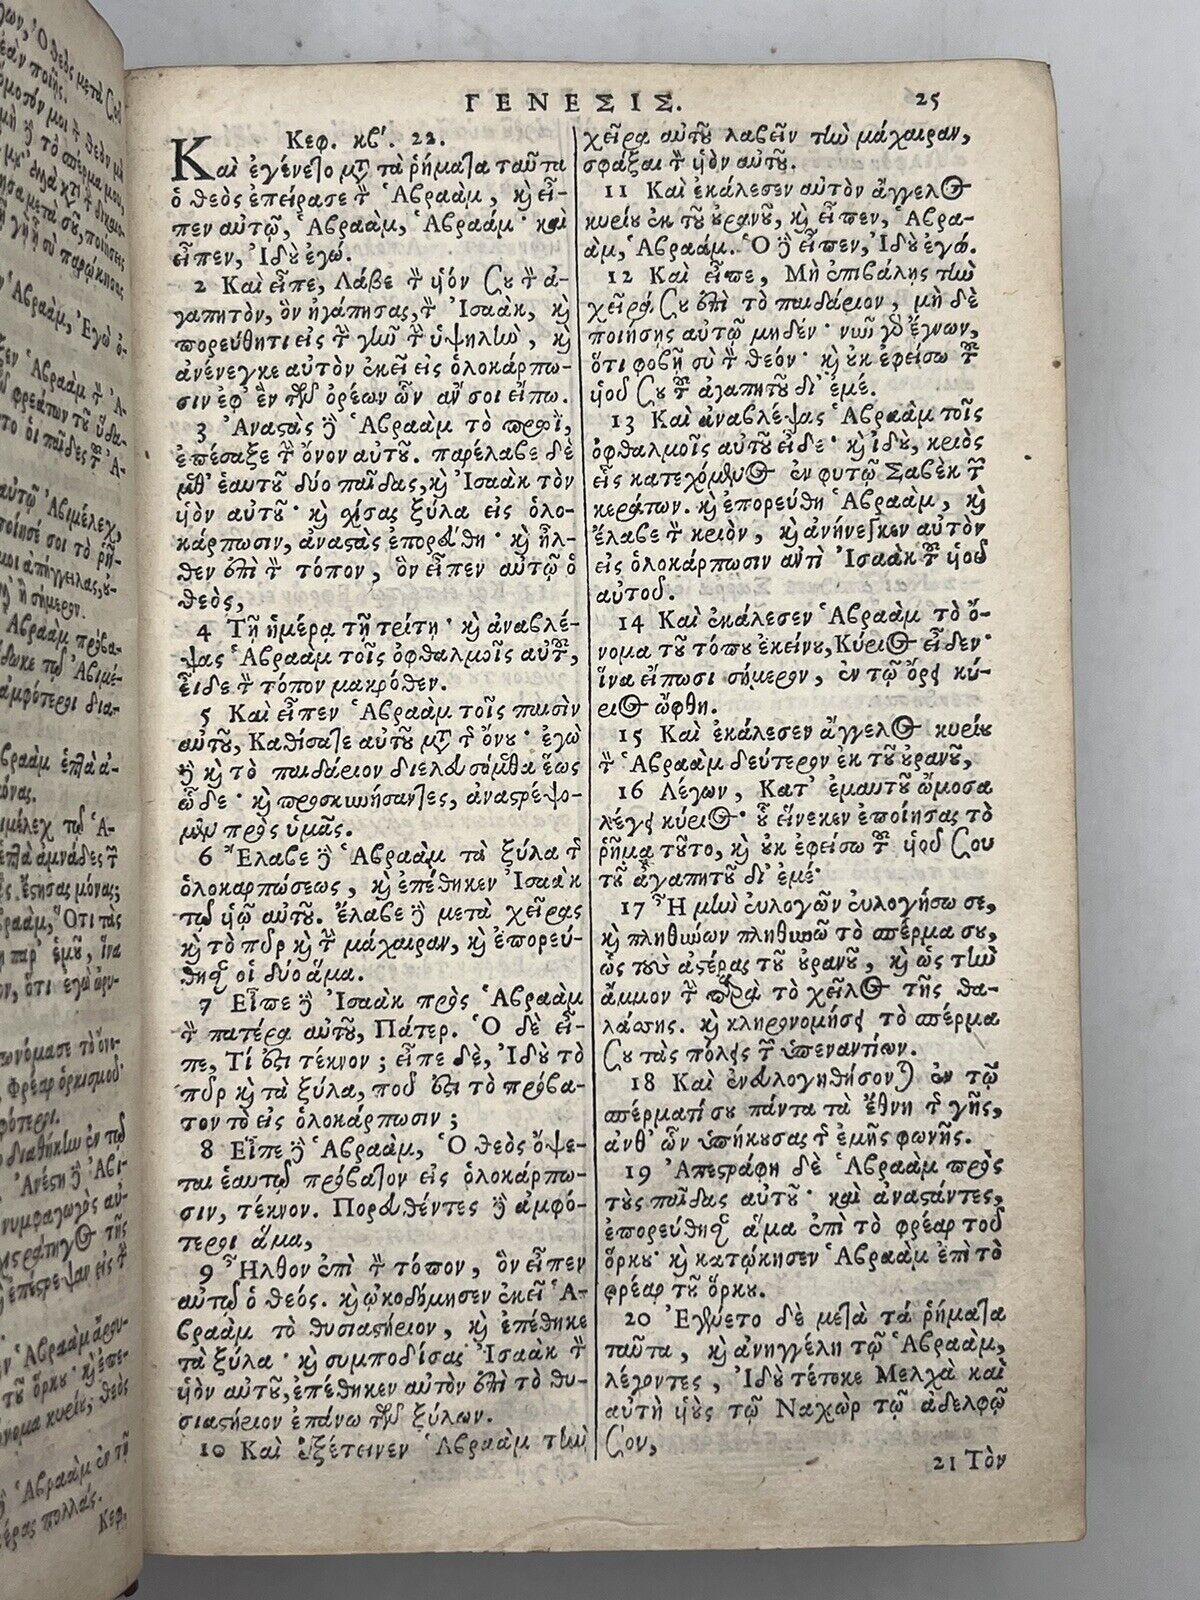 ΓΕΝΕΣΙΣ. 25
Κεφ. κβʹ. 22.
Καὶ ἐγένετο μτ̃ τὰ ῥήματα ταῦτα
ὁ θεὸς ἐπείρασε τ̀ Ἁβραὰμ, κỳ εἶ-
πεν αὐτῷ, Ἁβραὰμ, Ἁβραάμ· καὶ
εἶπεν, Ἰδοὺ ἐγώ.
2 Καὶ εἶπε, Λάβε τ̀ υἱόν σου τ̀ ἀ-
γαπητὸν, ὃν ἠγάπησας, τ̀ Ἰσαὰκ, κỳ
πορεύθητι εἰς τ̀ γlῶ τ̀ ὑψηλlὼ, κỳ
ἀνένεγκε αὐτὸν ἐκεῖ εἰς ὁλοκάρπω-
σιν ἐφ' ἓν τῶν ὀρέων ὧν ἄν σοι εἴπω.
3 Ἀναστὰς δὲ Ἁβραὰμ τὸ πρωῒ,
ἐπέσαξε τ̀ ὄνον αὐτοῦ. παρέλαβε δὲ
μεθ' ἑαυτοῦ δύο παῖδας, κỳ Ἰσαὰκ τὸν
υἱὸν αὐτοῦ· κỳ σχίσας ξύλα εἰς ὁλο-
κάρπωσιν, ἀναστὰς ἐπορεύθη· κỳ ἦλ-
θεν ἐπὶ τ̀ τόπον, ὃν εἶπεν αὐτῷ ὁ
θεὸς,
4 Τῇ ἡμέρᾳ τῇ τρίτῃ· κỳ ἀναβλέ-
ψας Ἁβραὰμ τοῖς ὀφθαλμοῖς αὐτοῦ,
εἶδε τ̀ τόπον μακρόθεν.
5 Καὶ εἶπεν Ἁβραὰμ τοῖς παισὶν
αὐτοῦ, Καθίσατε αὐτοῦ μτ̃ τ̃ ὄνου· ἐγὼ
δὲ κỳ τὸ παιδάριον διελευσόμεθα ἕως
ὧδε· κỳ προσκυνήσαντες, ἀναστρέψο-
μεν πρὸς ὑμᾶς.
6 Ἔλαβε δὲ Ἁβραὰμ τὰ ξύλα τ̃
ὁλοκαρπώσεως, κỳ ἐπέθηκεν Ἰσαὰκ
τῷ υἱῷ αὐτοῦ. ἔλαβε δὲ μετὰ χεῖρας
κỳ τὸ πῦρ κỳ τ̀ μάχαιραν, κỳ ἐπορεύ-
θησαν οἱ δύο ἅμα.
7 Εἶπε δὲ Ἰσαὰκ πρὸς Ἁβραὰμ
τ̀ πατέρα αὐτοῦ, Πάτερ. Ὁ δὲ εἶ-
πε, Τί ἐστι τέκνον; εἶπε δὲ, Ἰδοὺ τὸ
πῦρ κỳ τὰ ξύλα, ποῦ ἐστι τὸ πρόβα-
τον τὸ εἰς ὁλοκάρπωσιν;
8 Εἶπε δὲ Ἁβραὰμ, Ὁ θεὸς ὄψε-
ται ἑαυτῷ πρόβατον εἰς ὁλοκάρπω-
σιν, τέκνον. Πορευθέντες δὲ ἀμφό-
τεροι ἅμα,
9 Ἦλθον ἐπὶ τ̀ τόπον, ὃν εἶπεν
αὐτῷ ὁ θεός. κỳ ᾠκοδόμησεν ἐκεῖ Ἁ-
βραὰμ τὸ θυσιαστήριον, κỳ ἐπέθηκε
τὰ ξύλα· κỳ συμποδίσας Ἰσαὰκ τ̀
υἱὸν αὐτοῦ, ἐπέθηκεν αὐτὸν ἐπὶ τὸ θυ-
σιαστήριον ἐπάνω τῶν ξύλων.
10 Καὶ ἐξέτεινεν Ἁβραὰμ τlὼ
χεῖρα αὐτοῦ λαβεῖν τlὼ μάχαιραν,
σφάξαι τ̀ υἱὸν αὐτοῦ.
11 Καὶ ἐκάλεσεν αὐτὸν ἄγγελος
κυρίου ἐκ τοῦ οὐρανοῦ, κỳ εἶπεν, Ἁβρα-
ὰμ, Ἁβραάμ. Ὁ δὲ εἶπεν, Ἰδοὺ ἐγώ.
12 Καὶ εἶπε, Μὴ ἐπιβάλῃς τlὼ
χεῖρά σου ἐπὶ τὸ παιδάριον, μὴ δὲ
ποιήσῃς αὐτῷ μηδέν· νῦν γὰρ ἔγνων,
ὅτι φοβῇ σὺ τ̀ θεόν· κỳ οὐκ ἐφείσω τοῦ
υἱοῦ σου τοῦ ἀγαπητοῦ δι' ἐμέ.
13 Καὶ ἀναβλέψας Ἁβραὰμ τοῖς
ὀφθαλμοῖς αὐτοῦ εἶδε· κỳ ἰδοὺ, κριὸς
εἷς κατεχόμενος ἐν φυτῷ Σαβὲκ τῶν
κεράτων. κỳ ἐπορεύθη Ἁβραὰμ, κỳ
ἔλαβε τ̀ κριὸν, κỳ ἀνήνεγκεν αὐτὸν
εἰς ὁλοκάρπωσιν ἀντὶ Ἰσαὰκ τοῦ υἱοῦ
αὐτοῦ.
14 Καὶ ἐκάλεσεν Ἁβραὰμ τὸ ὄ-
νομα τοῦ τόπου ἐκείνου, Κύριος εἶδεν·
ἵνα εἴπωσι σήμερον, ἐν τῷ ὄρει κύ-
ριος ὤφθη.
15 Καὶ ἐκάλεσεν ἄγγελος κυρίου
τ̀ Ἁβραὰμ δεύτερον ἐκ τοῦ οὐρανοῦ,
16 Λέγων, Κατ' ἐμαυτοῦ ὤμοσα
λέγει κύριος· οὗ εἵνεκεν ἐποίησας τὸ
ῥῆμα τοῦτο, κỳ οὐκ ἐφείσω τοῦ υἱοῦ σου
τοῦ ἀγαπητοῦ δι' ἐμέ·
17 Ἦ μlὼ εὐλογῶν εὐλογήσω σε,
κỳ πληθύνων πληθυνῶ τὸ σπέρμα σου,
ὡς τοὺς ἀστέρας τοῦ οὐρανοῦ, κỳ ὡς τlὼ
ἄμμον τ̀ παρὰ τὸ χεῖλος τῆς θα-
λάσσης. κỳ κληρονομήσει τὸ σπέρμα
σου τὰς πόλεις τῶν ὑπεναντίων.
18 Καὶ ἐνευλογηθήσονται ἐν τῷ
σπέρματί σου πάντα τὰ ἔθνη τ̃ γῆς,
ἀνθ' ὧν ὑπήκουσας τ̃ ἐμῆς φωνῆς.
19 Ἀπεστράφη δὲ Ἁβραὰμ πρὸς
τοὺς παῖδας αὐτοῦ· καὶ ἀναστάντες,
ἐπορεύθησαν ἅμα ἐπὶ τὸ φρέαρ τοῦ
ὅρκου· κỳ κατῴκησεν Ἁβραὰμ ἐπὶ τὸ
φρέαρ τοῦ ὅρκου.
20 Ἐγένετο δὲ μετὰ τά ῥήματα
ταῦτα, κỳ ἀνηγγέλη τῷ Ἁβραὰμ,
λέγοντες, Ἰδοὺ τέτοκε Μελχὰ καὶ
αὐτὴ υἱοὺς τῷ Ναχὼρ τῷ ἀδελφῷ
σου,
21 Τὸν